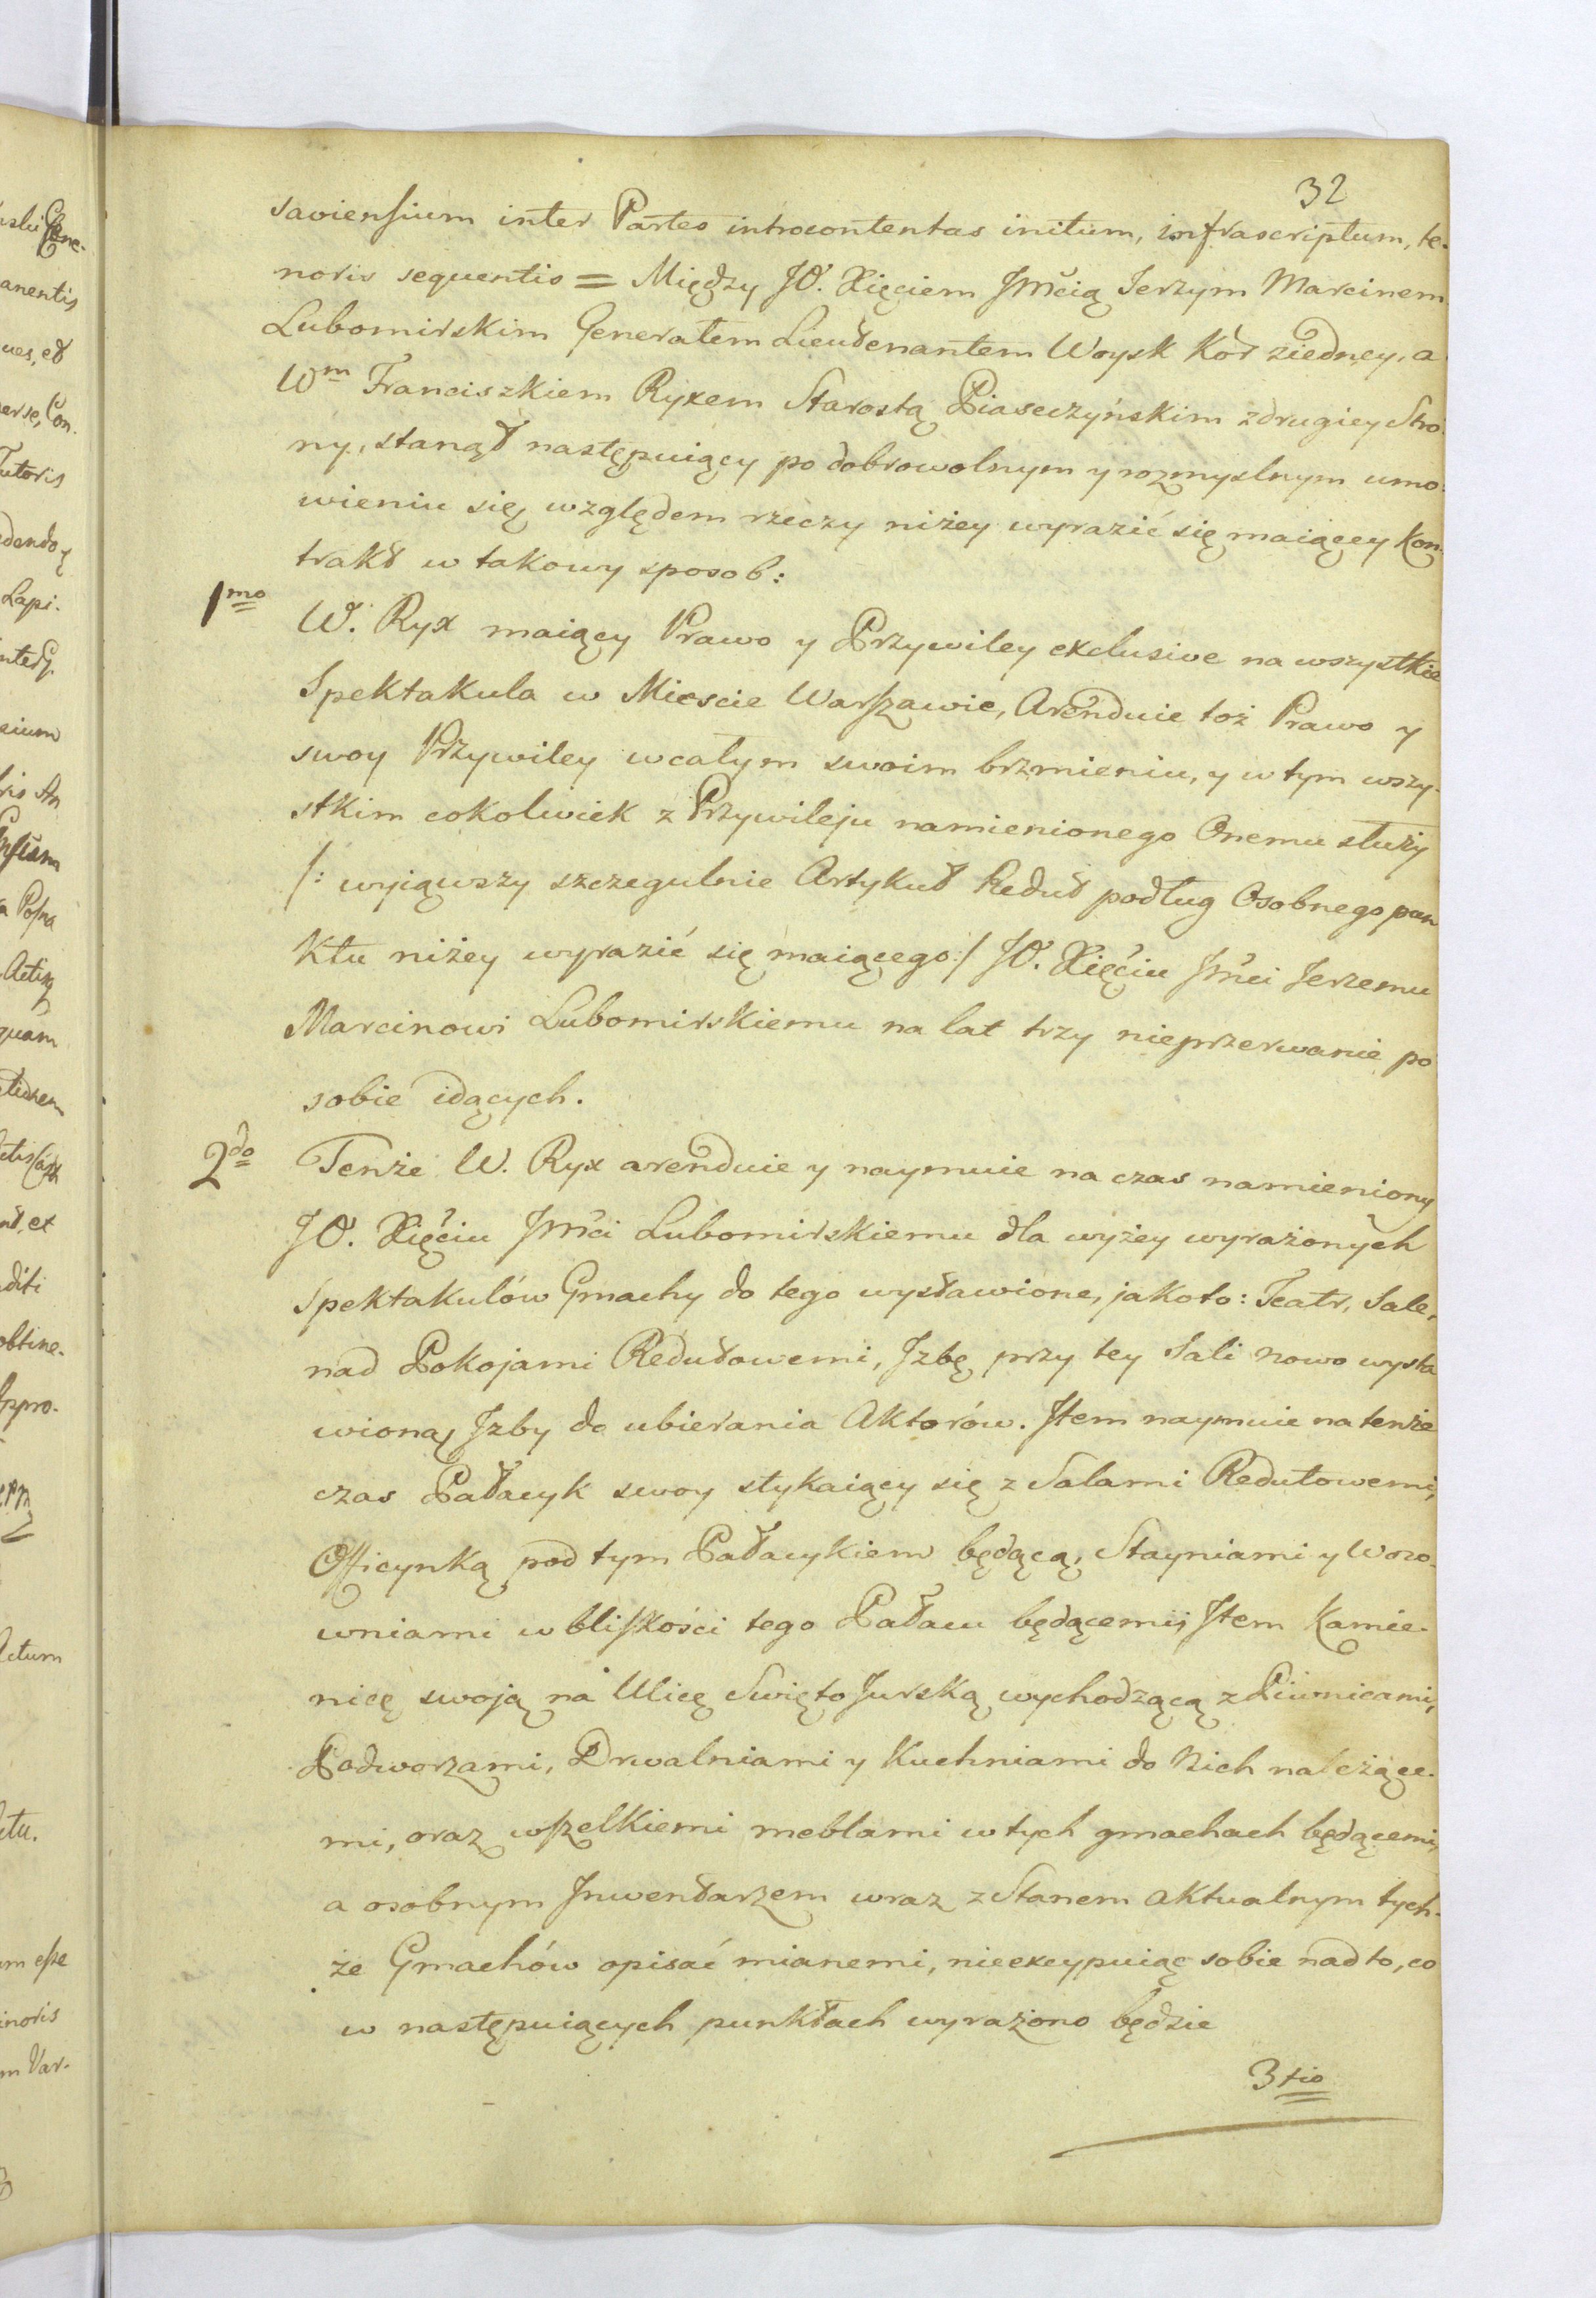 32
saviensium inter Partes introcontentas initum, infrascriptum, te-
noris sequentis = Między JO. Xięciem Jmćią Jerzym Marcinem
Lubomirskim Generałem Lieutenantem Woysk Kor z iedney, a
Wm Franciszkiem Ryxem Starostą Piaseczyńskim z drugiey Stro-
ny, stanął następuiący po dobrowolnym y rozmyslnym umo-
wieniu się względem rzeczy niżey wyrazić się maiącey Kon-
trakt w takowy sposob:
1mo W. Ryx maiący Prawo y Przywiley exclusive na wszystkie
Spektakula w Miescie Warszawie, Arenduie toż Prawo y
swoy Przywiley w całym swoim brzmieniu, y w tym wszy-
stkim cokolwiek z Przywileju namienionego Onemu służy
/: wyiąwszy szczegulnie Artykuł Redut podług Osobnego pun
Ktu niżey wyrazić się maiącego:/ JO. Xięćiu Jmći Jerzemu
Marcinowi Lubomirskiemu na lat trzy nieprzerwanie po
sobie idących.
2do Tenże W. Ryx arenduie y naymuie na czas namieniony
JO. Xięćiu Jmći Lubomirskiemu dla wyżey wyrażonych
Spektakulów Gmachy do tego wystawione, jakoto: Teatr, Sale,
nad Pokojami Redutowemi, Jzbę przy tey Sali nowo wysta
wioną, Jzby do ubierania Aktorów. Jtem naymuie na tenże
czas Pałacyk swoy stykaiący się z Salami Redutowemi,
Officynką pod tym Pałacykiem będącą, Stayniami y Wozo-
wniami w bliskości tego Pałacu będącemi, Jtem Kamie-
nicę swoją na Ulicę Swięto Jurską wychodzącą z Piwnicami,
Podworzami, Drwalniami y Kuchniami do Nich należące-
mi, oraz wszelkiemi meblami w tych gmachach będącemi,
a osobnym Jnwentarzem wraz z Stanem aktualnym tych-
że Gmachów opisać mianemi, nieexcypuiąc sobie nad to, co
w następuiących punktach wyrażono będzie
3tio